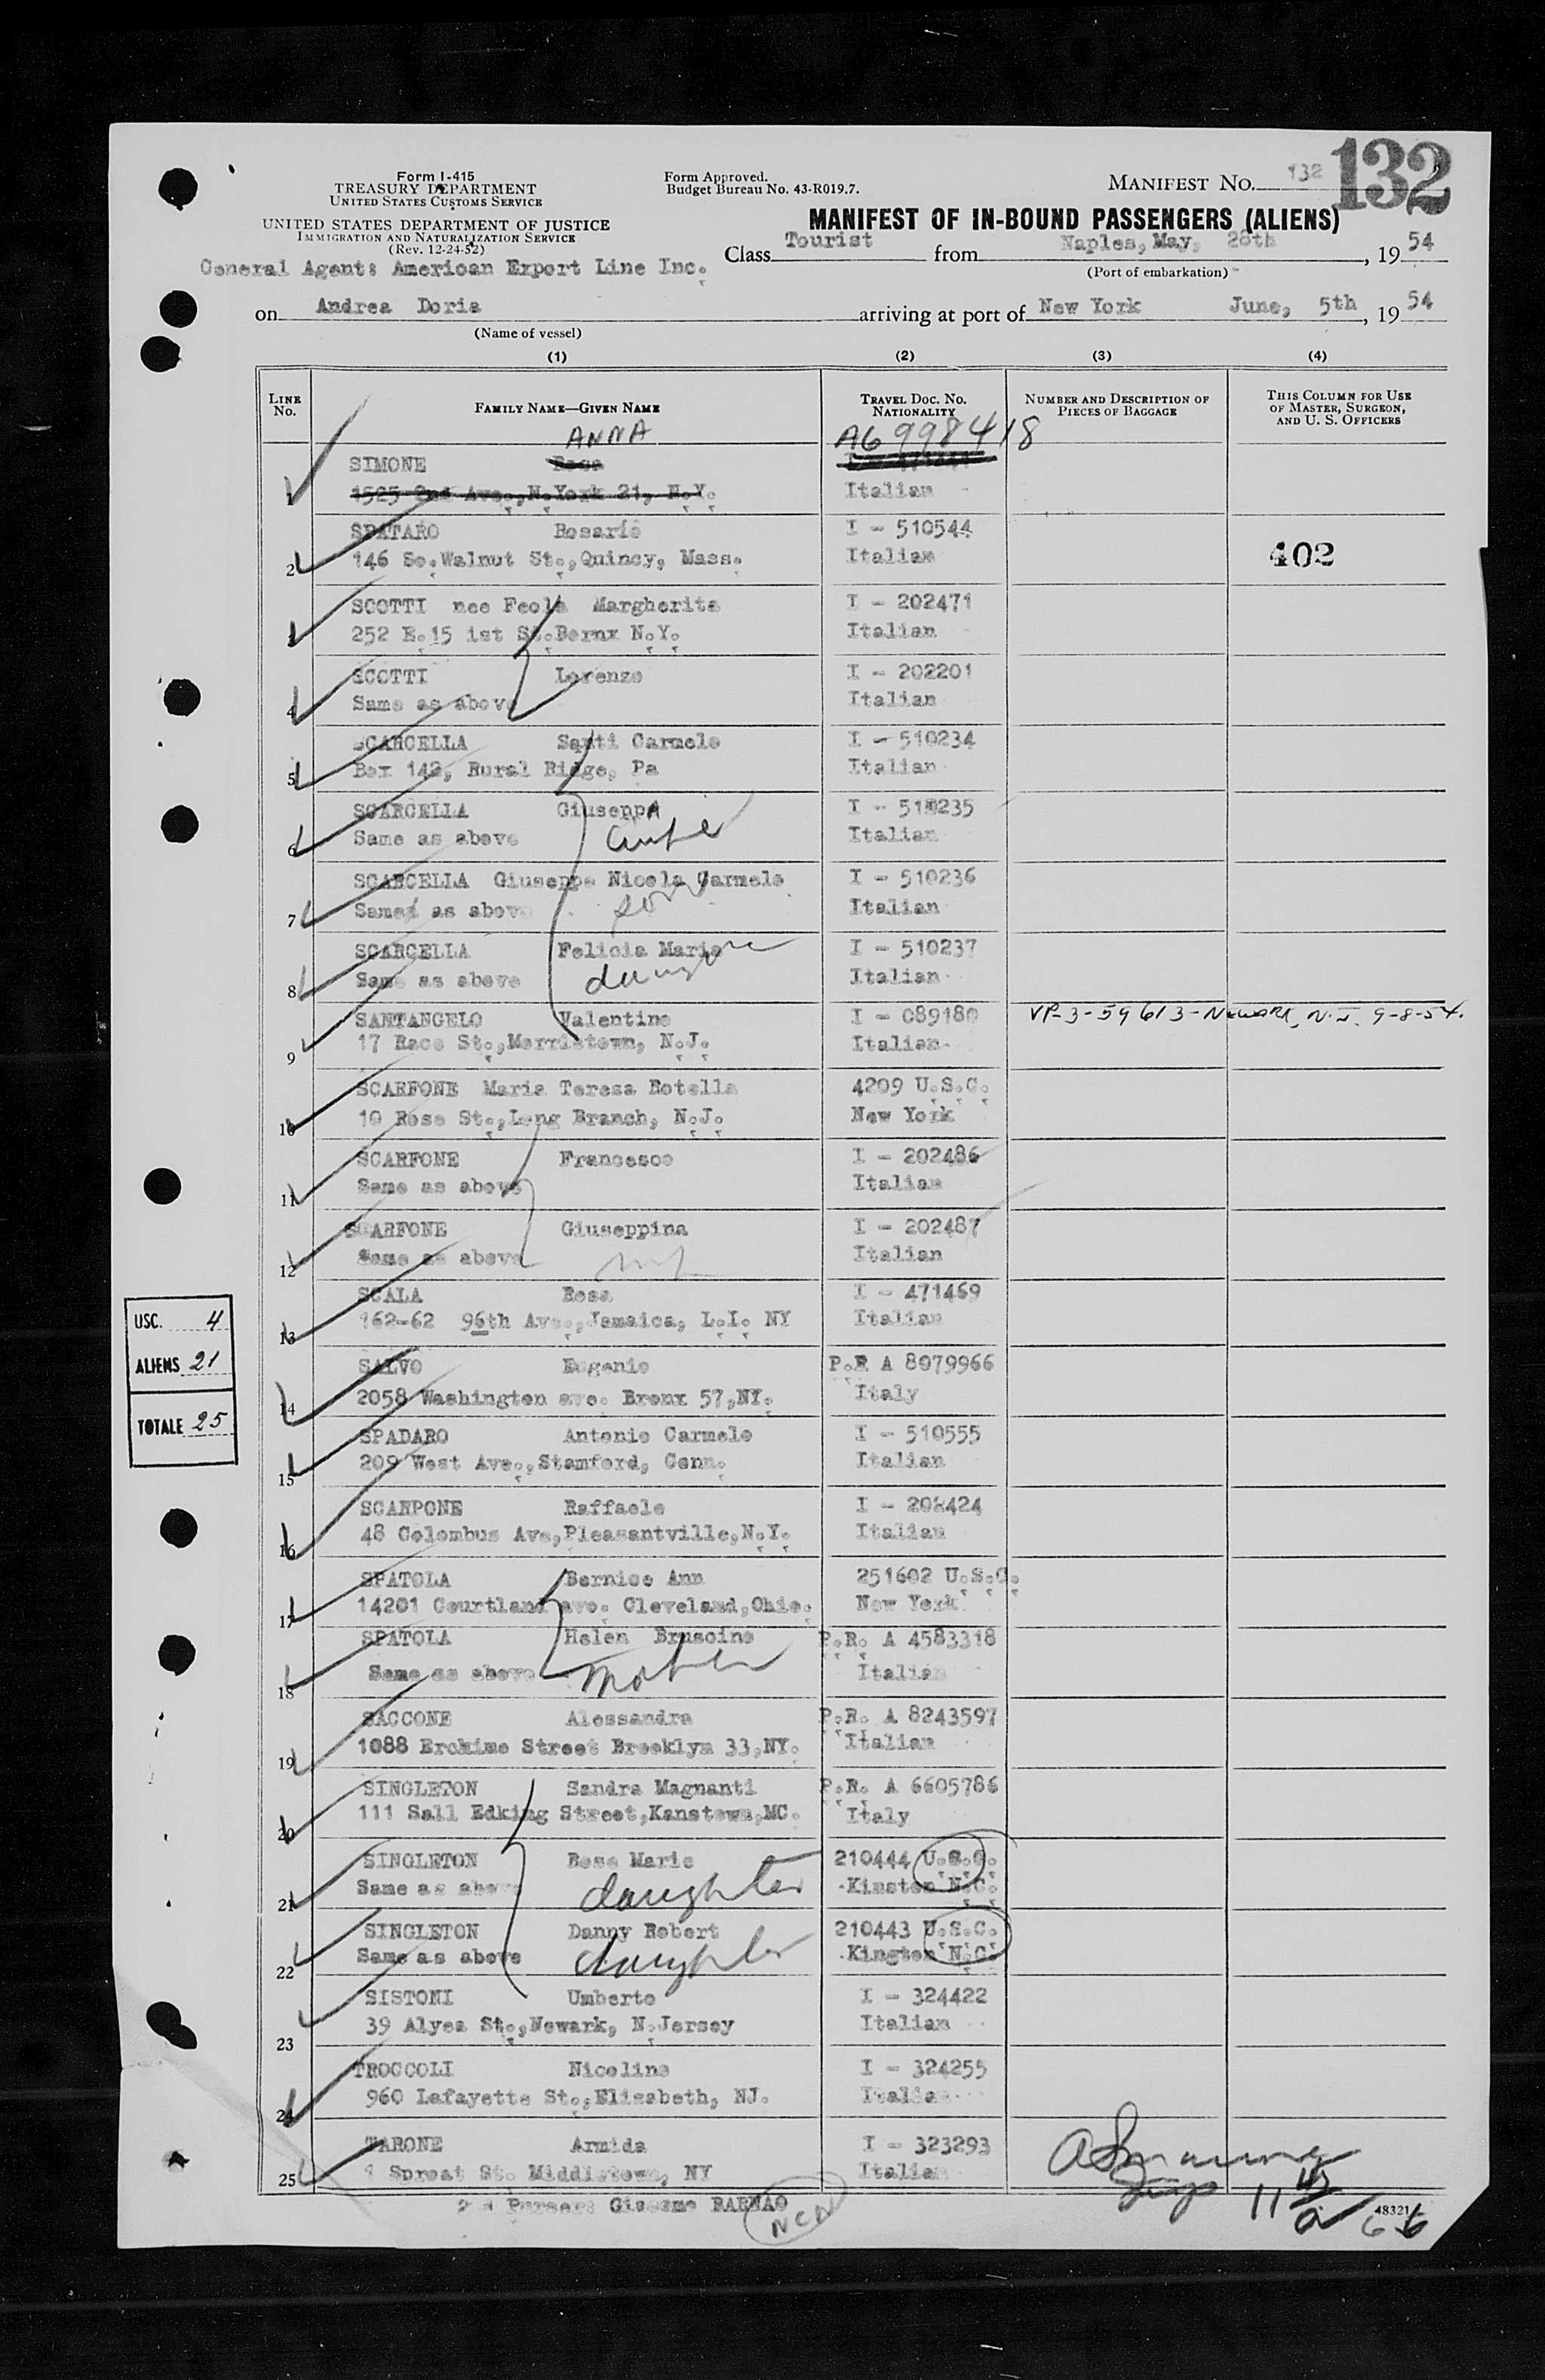 132
Form I-415
TREASURY DEPARTMENT
UNITED STATES CUSTOMS SERVICE
UNITED STATES DEPARTMENT OF JUSTICE
IMMIGRATION AND NATURALIZATION SERVICE
(Rev. 12-24-52)
Form Approved.
Budget Bureau No. 43-R019.7.
MANIFEST NO. 132
MANIFEST OF IN-BOUND PASSENGERS (ALIENS)
General Agent: American Export Line Inc.
Class Tourist from Naples, May, 28th, 1954
(Port of embarkation)
on Andrea Doria arriving at port of New York June, 5th, 1954
(Name of vessel)
(1) (2) (3) (4)
LINE NO.
FAMILY NAME—GIVEN NAME
TRAVEL DOC. NO. NATIONALITY
NUMBER AND DESCRIPTION OF PIECES OF BAGGAGE
THIS COLUMN FOR USE OF MASTER, SURGEON, AND U. S. OFFICERS
ANNA A6998418
SIMONE Rosa
1 1525 2nd Ave., N.York 21, N.Y. Italian
SPATARO Rosario I - 510544
2 146 So.Walnut St., Quincy, Mass. Italian 402
SCOTTI nee Feola Margherita I - 202471
3 252 E.15 1st St.Bornx N.Y. Italian
SCOTTI Lorenzo I - 202201
4 Same as above Italian
SCARCELLA Santi Carmelo I - 510234
5 Box 142, Rural Ridge, Pa Italian
SCARCELLA Giuseppa I - 510235
6 Same as above wife Italian
SCARCELLA Giuseppe Nicola Carmelo I - 510236
7 Same as above son Italian
SCARCELLA Felicia Maria I - 510237
8 Same as above Italian
SANTANGELO Valentino I - 089180 VP-3-59613-Newark, N.J. 9-8-54.
9 17 Race St., Morristown, N.J. Italian
SCARFONE Maria Teresa Rotella 4209 U.S.C.
10 10 Rose St., Long Branch, N.J. New York
SCARFONE Francesco I - 202486
11 Same as above Italian
SCARFONE Giuseppina I - 202487
12 Same as above Italian
SCALA Rosa I - 471469
13 162-62 96th Ave., Jamaica, L.I. NY Italian
SALVO Eugenio P.R A 8079966
14 2058 Washington ave. Bronx 57, NY. Italy
SPADARO Antonio Carmelo I - 510555
15 209 West Ave., Stamford, Conn. Italian
SCARPONE Raffaele I - 202424
16 48 Colombus Ave, Pleasantville, N.Y. Italian
SPATOLA Bernice Ann 251602 U.S.C.
17 14201 Courtland ave. Cleveland, Ohio. New York
SPATOLA Helen Bruscino P.R. A 4583318
18 Same as above mother Italian
SACCONE Alessandra P.R. A 8243597
19 1088 Erckime Street Brooklyn 33, NY. Italian
SINGLETON Sandra Magnanti P.R. A 6605786
20 111 Sall Edking Street, Kanstown, MC. Italy
SINGLETON Rosa Marie 210444 U.S.C.
21 Same as above daughter Kinston N.C.
SINGLETON Danny Robert 210443 U.S.C.
22 Same as above daughter Kington N.C.
SISTONI Umberto I - 324422
23 39 Alyea St., Newark, N.Jersey Italian
TROCCOLI Nicolina I - 324255
24 960 Lafayette St., Elizabeth, NJ. Italian
TARONE Armida I - 323293
25 Sproat St. Middletown, NY Italian
Purser: RARNAO
NCN
48321
USC. 4
ALIENS 21
TOTALE 25